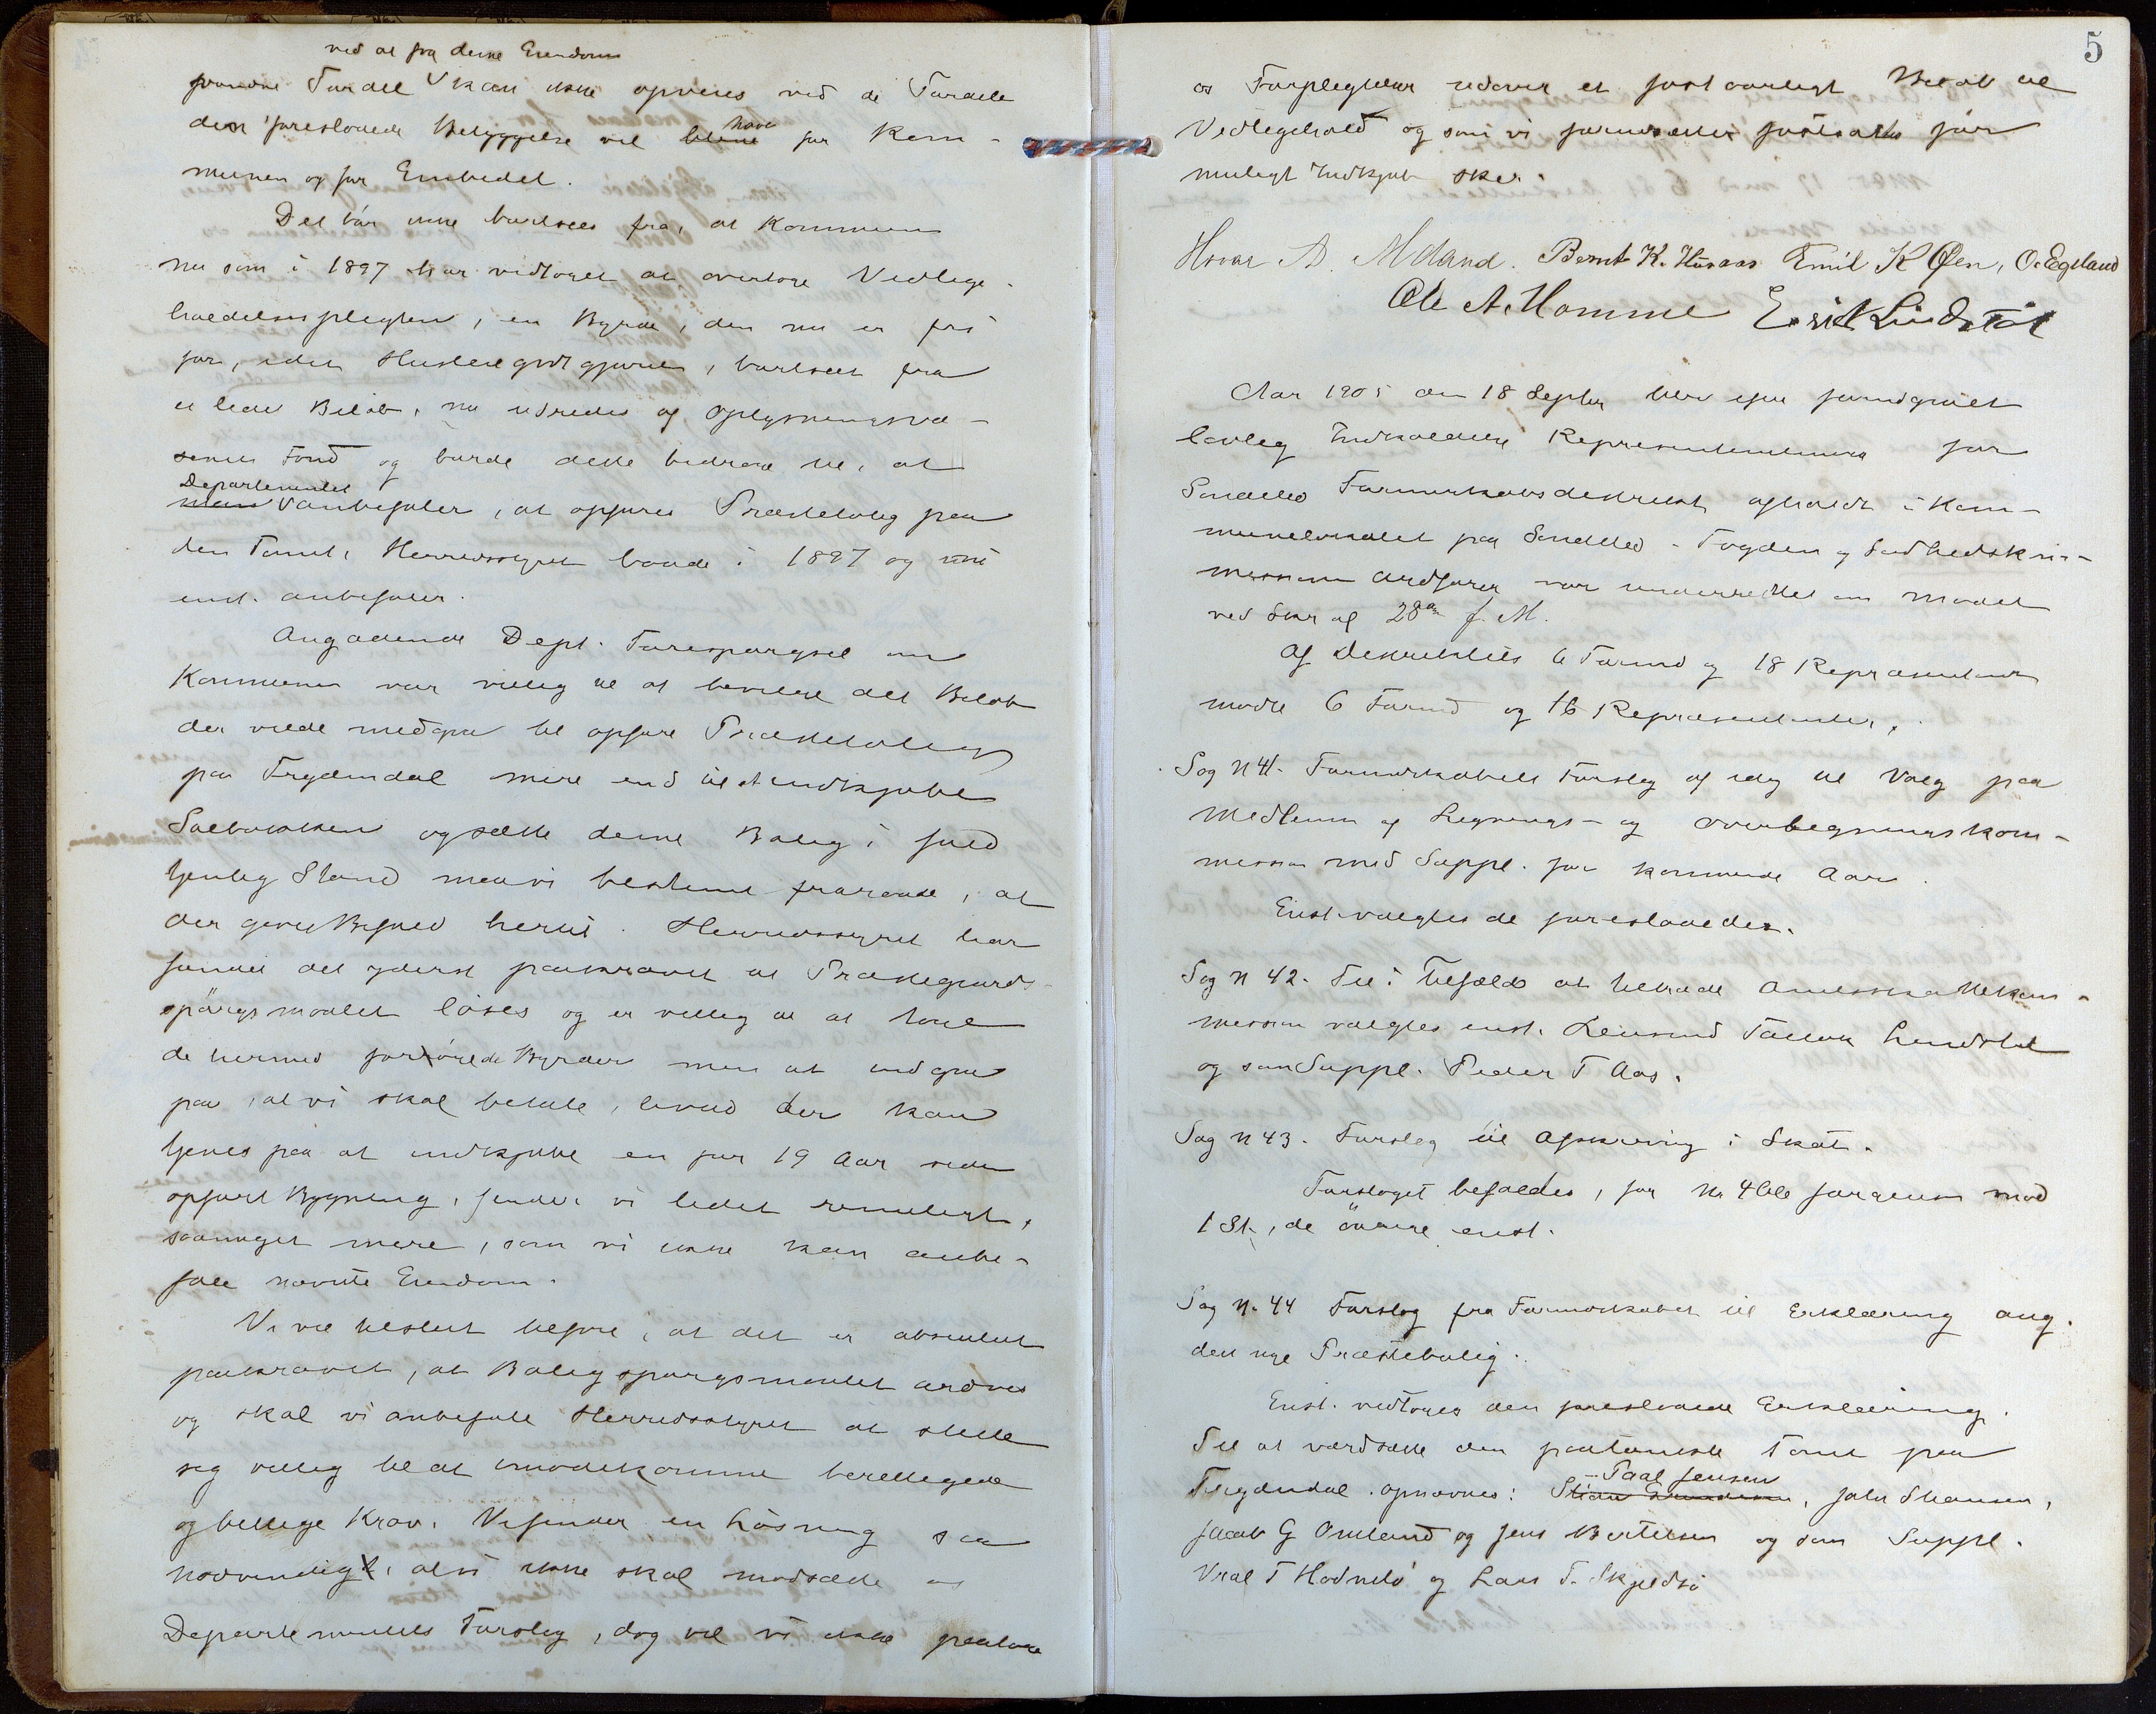 ved at fra denne Eiendom
Fordel kan ikke opveies ved de Fordele
den foreslaaede Bebyggelse vil blive have for Kom-
munen og for Embedet.
Det bør ikke bortsees fra, at Kommunen
nu som i 1897 har vedtaget at overtage Vedlige-
holdelsespligten, en Byrde, den nu er fri
for, idet Husleiegodtgjørelse, bortseet fra
et lidet Beløb, nu udredes af Oplysningsvæ-
senets Fond og burde dette bidrage til, at
Departementet
man anbefaler, at opføres Præstebolig paa
den Tomt, Herredsstyret baade i 1897 og nu
enst. anbefaler.
Angaaende Dept. Forespørgsel om
Kommunen var villig til at bevilge det Beløb
der vilde medgaa til opføre Præstebolig
paa Frydendal mere end til at indkjøbe
Solbakken og sætte denne Bolig i fuld
tjenlig Stand maa vi bestemt fraraade, at
der gives Beføied hertil. Herredsstyret har
fundet det yderst paakrævet at Præstegaards-
spørgsmaalet løses og er villig til at bære
de hermed forbundne Byrder men at indgaa
paa, at vi skal betale, hvad der kan
tjenes paa at indkjøbe en for 19 Aar siden
opført Bygning, finder vi lidet rimeligt,
saameget mere, som vi ikke kan anbe-
fale nævnte Eiendom.
Vi vil tilslut tilføie, at det er absolut
paakrævet, at Boligspørgsmaalet ordnes
og skal vi anbefale Herredsstyret at stille
sig villig til at imødekomme berettigede
og billige Krav. Vi finder en Løsning saa
nødvendig, at vi ikke skal modsætte os
Departementets Forslag, dog vil vi ikke paatage
5
os Forpligtelser udover et fast aarligt Beløb til
Vedligehold og som vi forudsætter fastsattes før
muligt Indkjøb sker.
Hovar A. Moland. Bernt K. Husaas Emil K Øen, O. Egeland
Ole A. Homme Erik Lindstøl
Aar 1905 den 18 Septbr blev efter forudgaaet
lovlig Indkaldelse Repræsentantmøde for
Søndeled Formandskabsdistrikt afholdt i Kom-
munelokalet paa Søndeled. Fogden og Sundhedskom-
missionens Ordfører var underrettet om Mødet
ved Skr af 28de f. M.
Af Distriktets 6 Formd og 18 Repræsentanter
mødte 6 Formd og 16 Repræsentanter.
Sag N 41. Formandskabets Forslag af idag til Valg paa
Medlemmer af Lignings- og Overligningskom-
mission med Suppl. for kommende Aar.
Enst. valgtes de foreslaaede.
Sag N 42. Til i Tilfælde at tiltræde Amtsskattekom-
mission valgtes enst. Lensmd Tallak Lindstøl
og som Suppl. Peder T Aas.
Sag N 43. Forslag til Afskrivning i Skat.
Forslaget bifaldtes, for No 4 Ole Jørgensen mod
1 St., de øvrige enst.
Sag No 44 Forslag fra Formandskabet til Erklæring ang.
den nye Præstebolig.
Enst. vedtoges den foreslaaede Erklæring.
Til at værdsætte den paatænkte Tomt paa
Frydendal opnævnes: Paal Jensen, John Shansen,
Jacob G Omland og Jens Bertelsen og som Suppl.
Vral T Hødnebø og Lars T. Skjeldsø